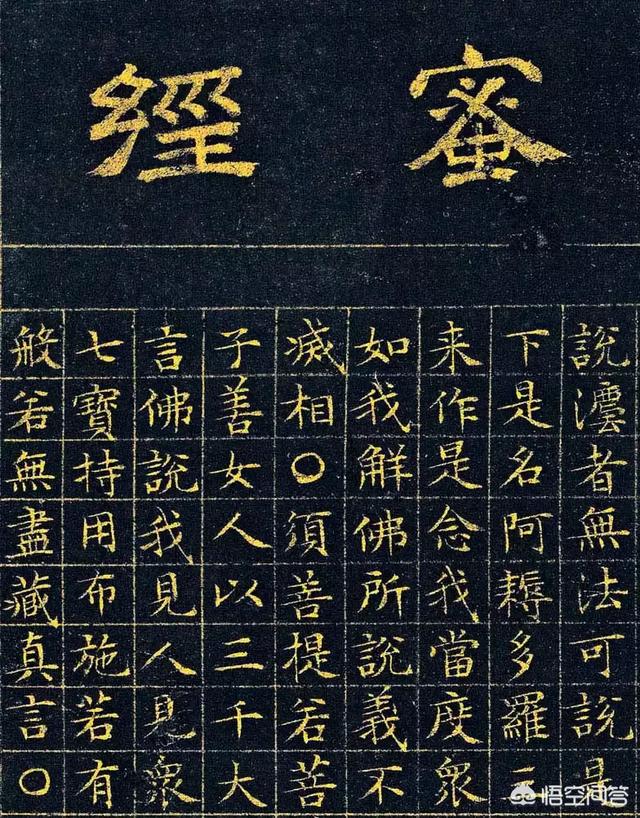 蜜經
說灋者無法可說是
下是名阿耨多羅三
来作是念我當度眾
如我解佛所說義不
滅相〇須菩提若菩
子善女人以三千大
言佛說我見人見眾
七寶持用布施若有
般若無盡藏真言〇
悟空问答